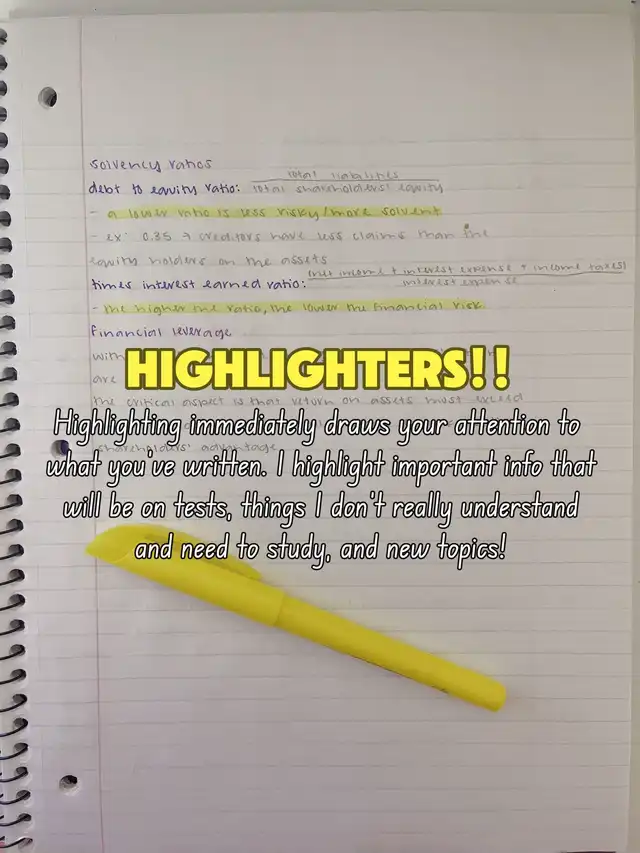 solvency ratios
total liabilities
debt to equity ratio: total shareholders' equity
- a lower ratio is less risky/more solvent
- ex: 0.35 → creditors have less claims than the
equity holders on the assets
(net income + interest expense + income taxes)
times interest earned ratio: interest expense
- the higher the ratio, the lower the financial risk
financial leverage
with
HIGHLIGHTERS!!
are
the critical aspect is that return on assets must exceed
Highlighting immediately draws your attention to
shareholders' advantage
what you've written. I highlight important info that
will be on tests, things I don't really understand
and need to study, and new topics!